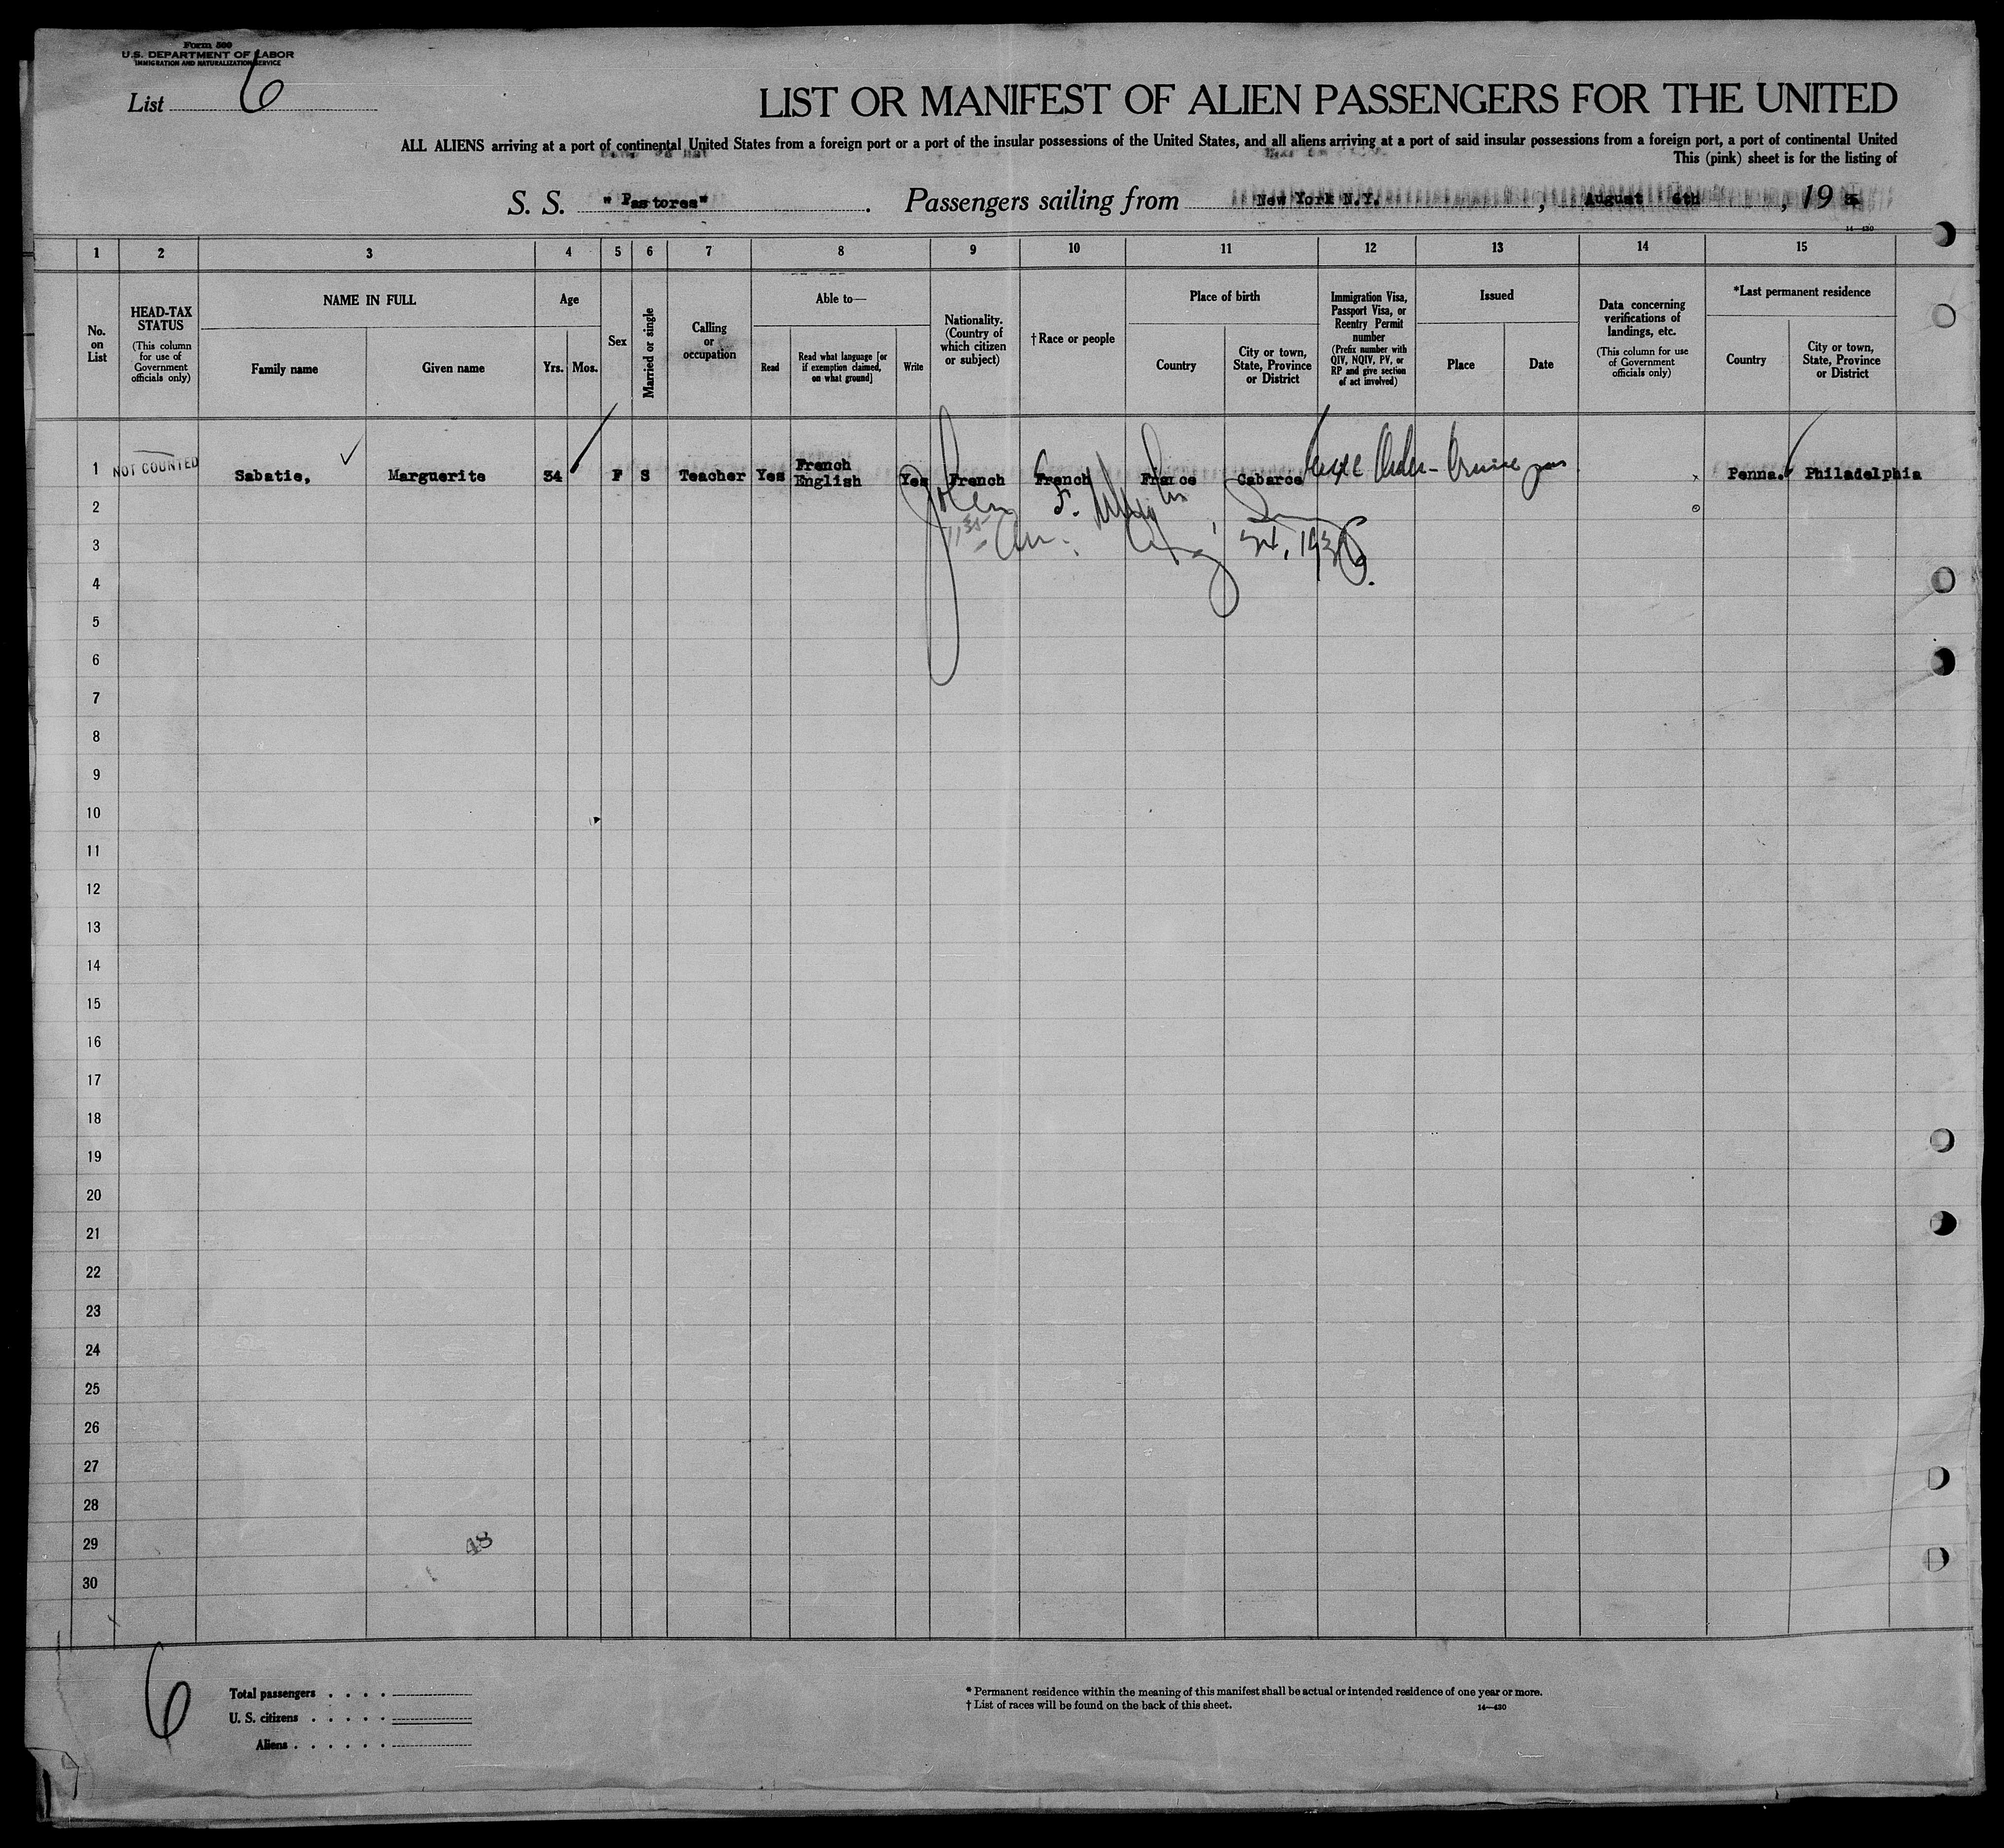 Form 500
U.S. DEPARTMENT OF LABOR
IMMIGRATION AND NATURALIZATION SERVICE
List 6
LIST OR MANIFEST OF ALIEN PASSENGERS FOR THE UNITED
ALL ALIENS arriving at a port of continental United States from a foreign port or a port of the insular possessions of the United States, and all aliens arriving at a port of said insular possessions from a foreign port, a port of continental United
This (pink) sheet is for the listing of
S. S. "Pastores". Passengers sailing from New York N.Y., August 6th, 19
14—430
1 2 3 4 5 6 7 8 9 10 11 12 13 14 15
No. on List
HEAD-TAX STATUS
(This column for use of Government officials only)
NAME IN FULL
Family name
Given name
Age
Yrs.
Mos.
Sex
Married or single
Calling or occupation
Able to—
Read
Read what language [or if exemption claimed, on what ground]
Write
Nationality. (Country of which citizen or subject)
†Race or people
Place of birth
Country
City or town, State, Province or District
Immigration Visa, Passport Visa, or Reentry Permit number
(Prefix number with QIV, NQIV, PV, or RP and give section of act involved)
Issued
Place
Date
Data concerning verifications of landings, etc.
(This column for use of Government officials only)
*Last permanent residence
Country
City or town, State, Province or District
1 NOT COUNTED Sabatie, Marguerite 34 F S Teacher Yes French English Yes French French France Cabarce Penna. Philadelphia
2
3
4
5
6
7
8
9
10
11
12
13
14
15
16
17
18
19
20
21
22
23
24
25
26
27
28
29
30
48
6
Total passengers
U. S. citizens
Aliens
* Permanent residence within the meaning of this manifest shall be actual or intended residence of one year or more.
† List of races will be found on the back of this sheet.
14—430